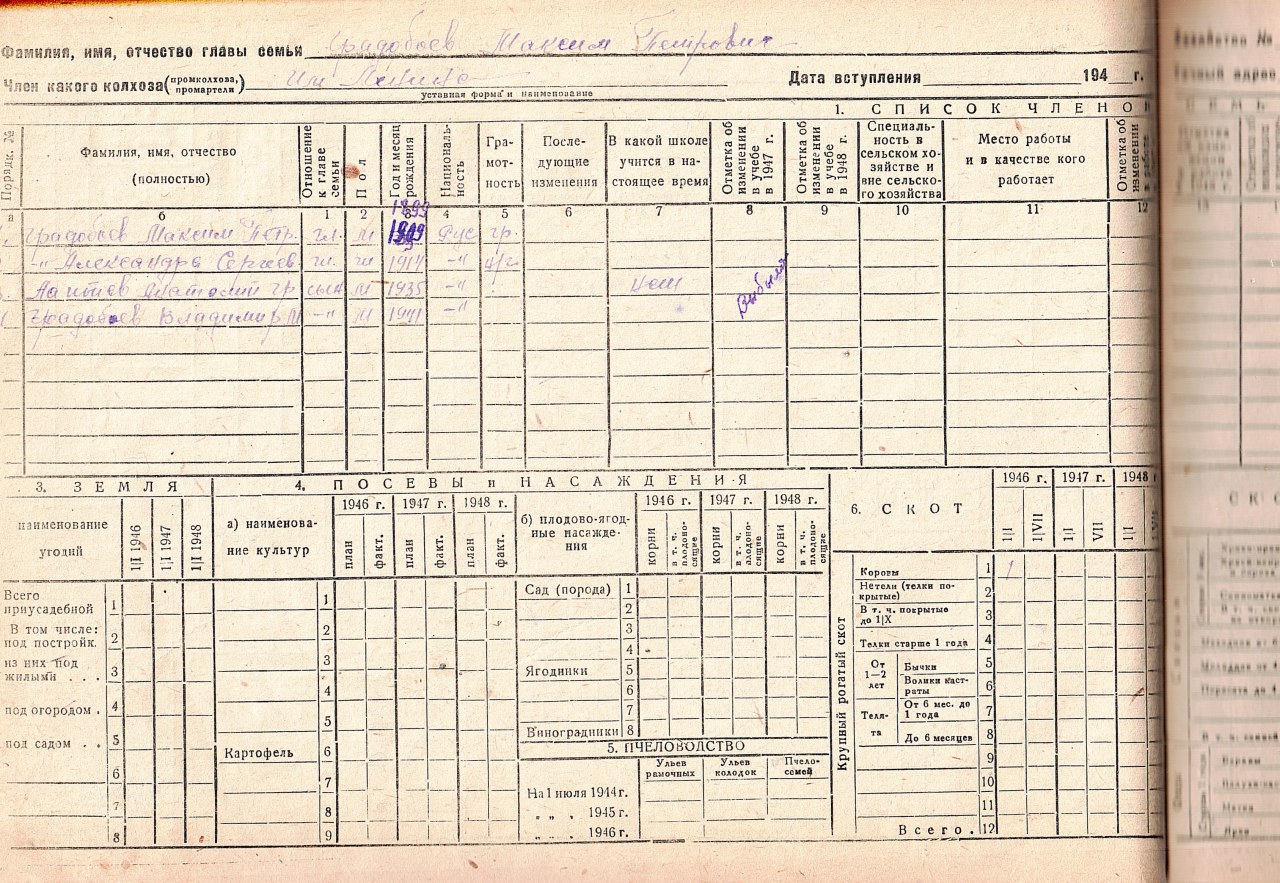 Фамилия, имя, отчество главы семьи Градобоев Максим Петрович
Член какого колхоза (промколхоза, промартели) Им Ленина Дата вступления 194 г.
уставная форма и наименование
1. СПИСОК ЧЛЕНОВ
Порядк. № Фамилия, имя, отчество (полностью) Отношение к главе семьи Пол Год и месяц рождения Националь-ность Гра-мот-ность После-дующие изменения В какой школе учится в на-стоящее время Отметка об изменении в учебе в 1947 г. Отметка об изменении в учебе в 1948 г. Специаль-ность в сельском хо-зяйстве и вне сельско-го хозяйства Место работы и в качестве кого работает Отметка об изменении
а б 1 2 3 4 5 6 7 8 9 10 11 12
1899
Градобоев Максим Петр. гл. м 1909 Рус гр.
-"- Александра Сергеев 1914 -"-
Анатолий гр сын м 1935 -"- Выбыл
Градобоев Владимир М -"- м 1941 -"-
3. ЗЕМЛЯ
наименование угодий 1|I 1946 1|I 1947 1|I 1948
Всего приусадебной 1
В том числе: под постройк. 2
из них под жилыми . . . 3
под огородом . 4
под садом . . 5
6
7
8
4. ПОСЕВЫ и НАСАЖДЕНИЯ
а) наименова-ние культур 1946 г. 1947 г. 1948 г.
план факт. план факт. план факт.
1
2
3
4
5
Картофель 6
7
8
9
б) плодово-ягод-ные насажде-ния 1946 г. 1947 г. 1948 г.
корни в т. ч. плодоно-сящие корни в т. ч. плодоно-сящие корни в т. ч. плодоно-сящие
Сад (порода) 1
2
3
4
Ягодники 5
6
7
Виноградники 8
5. ПЧЕЛОВОДСТВО
Ульев рамочных Ульев колодок Пчело-семей
На 1 июля 1944 г.
" " , 1945 г.
" " , 1946 г.
6. СКОТ 1946 г. 1947 г. 1948 г
1|I 1|VII 1|I VII 1|I
Крупный рогатый скот
Коровы 1 1
Нетели (телки по-крытые) 2
В т. ч. покрытые до 1|X 3
Телки старше 1 года 4
От 1—2 лет Бычки 5
Волики каст-раты 6
Теля-та От 6 мес. до 1 года 7
До 6 месяцев 8
9
10
11
Всего. 12